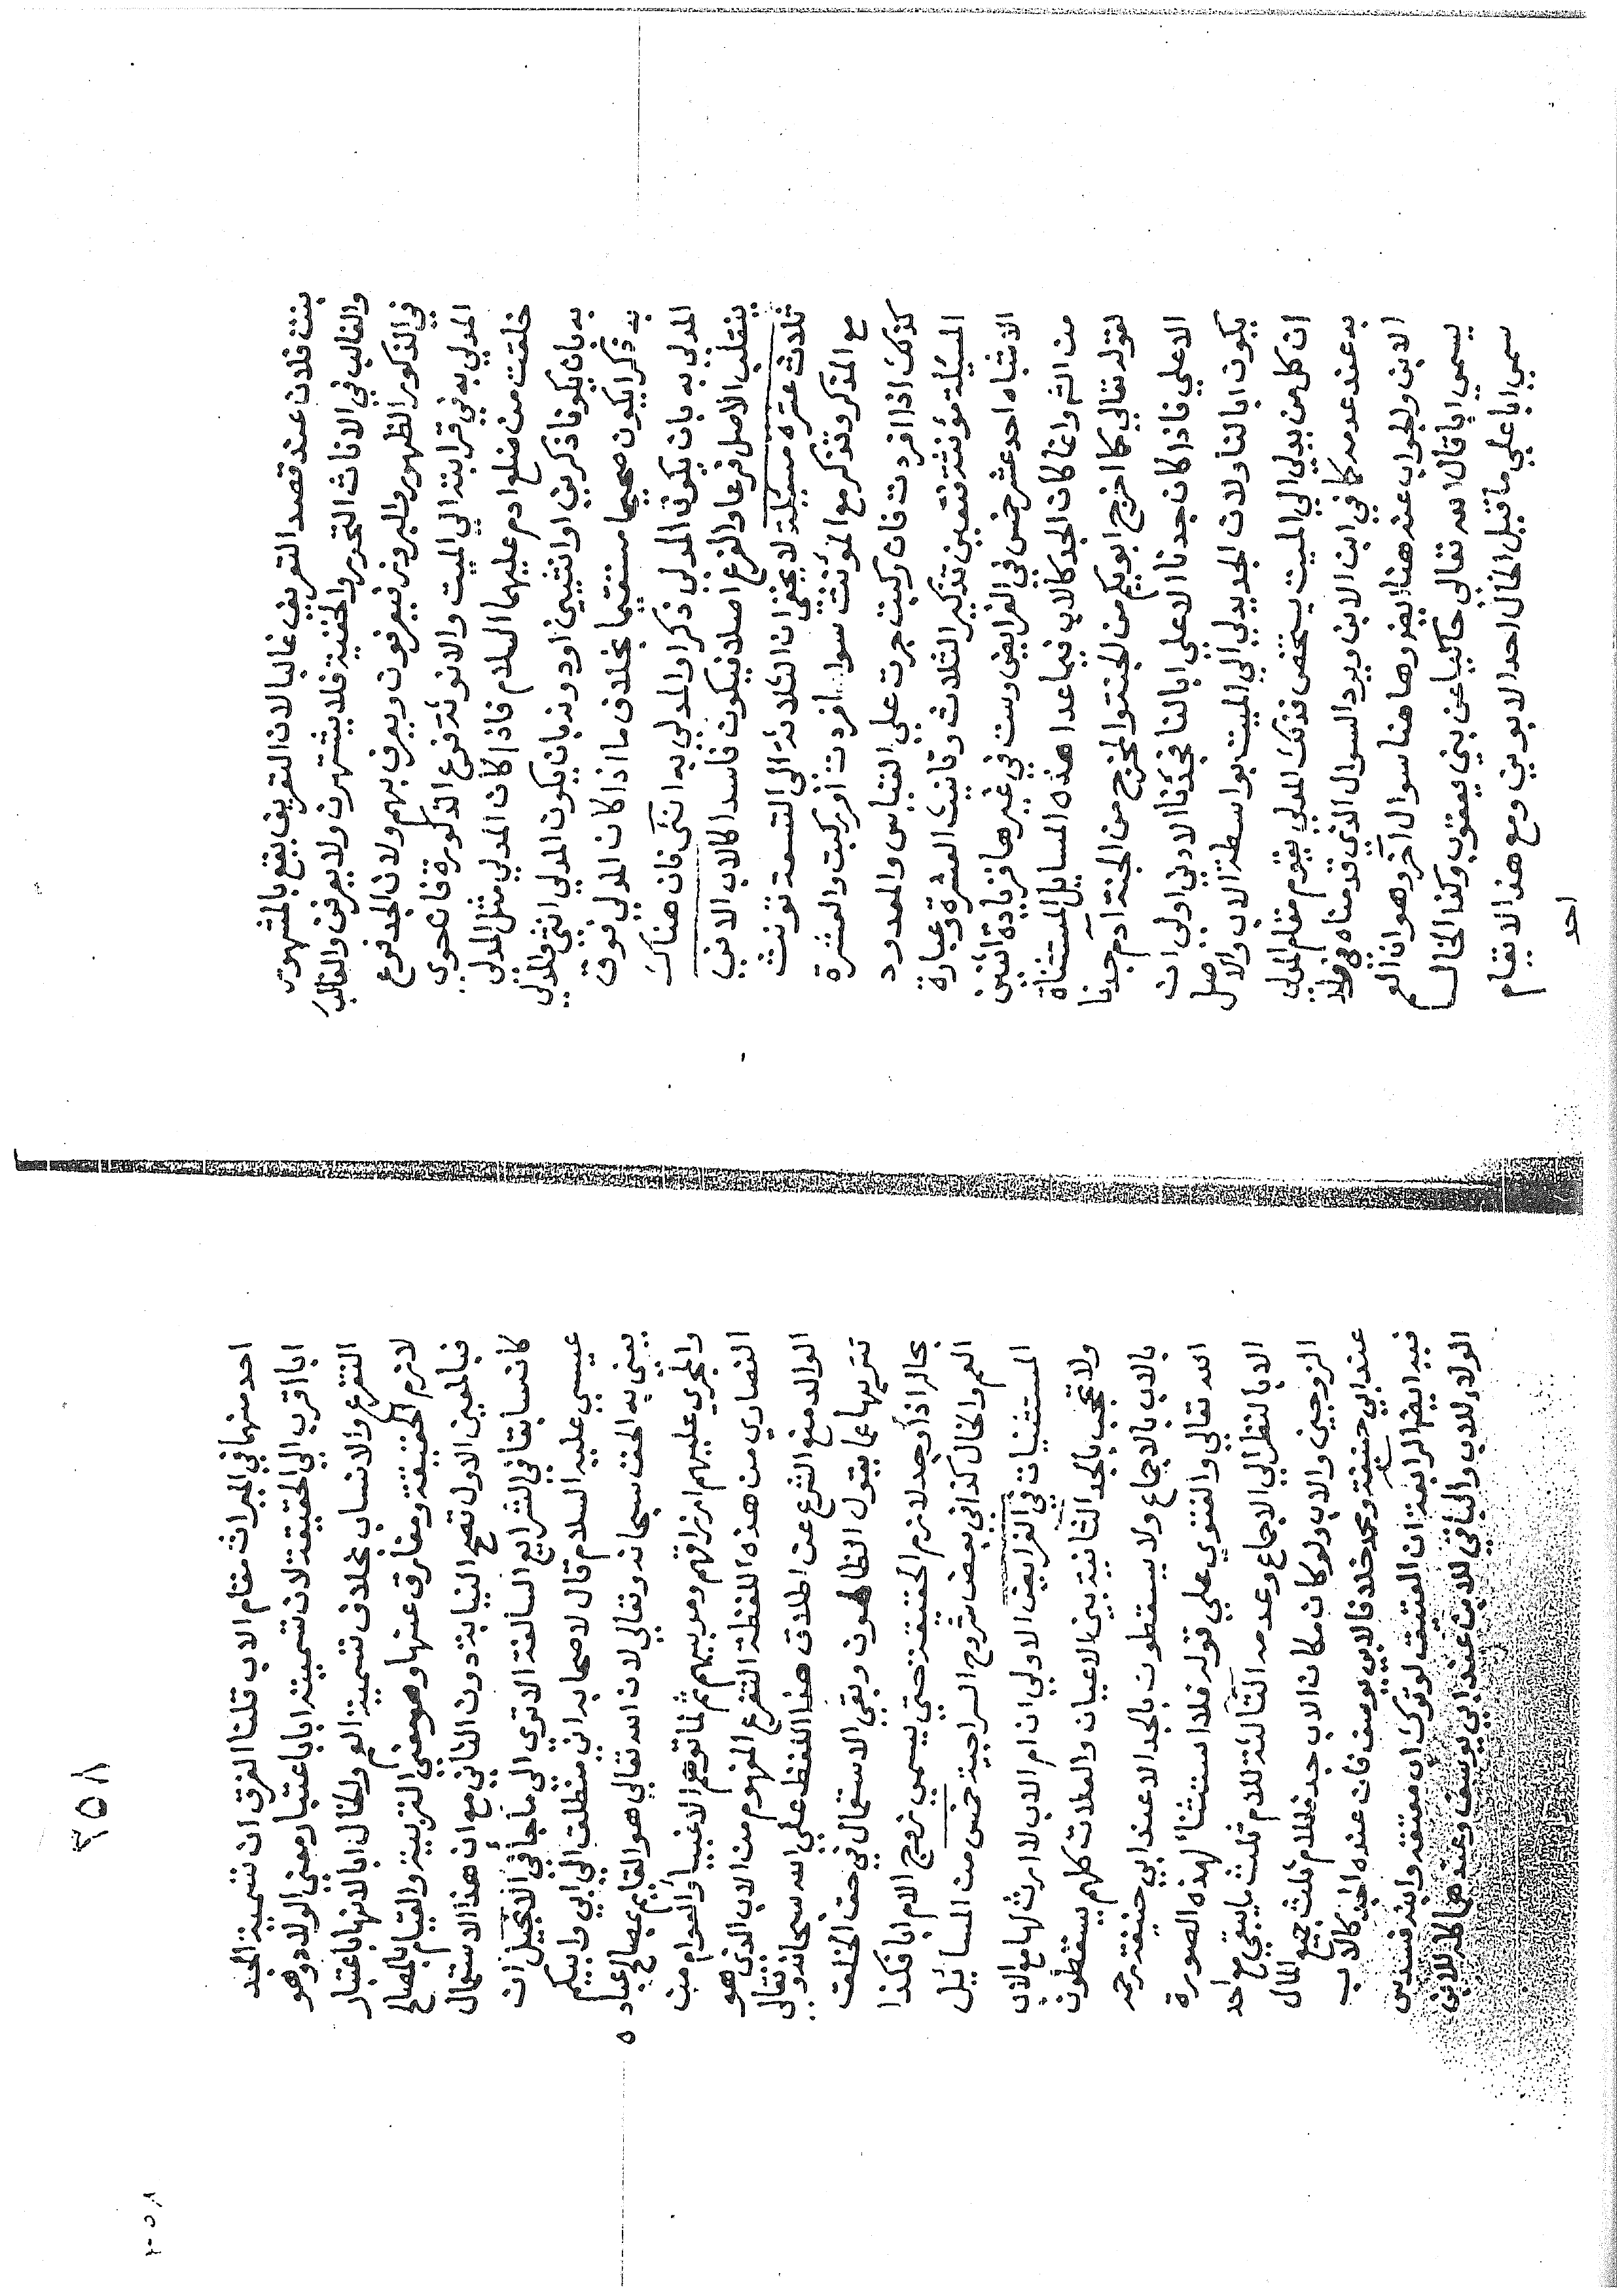 بنت فلان عند قصد التعريف غالبا لان التعريف يقع بالمشهور
والغالب في الاناث التخدير والخفية فلا يشتهرن ولا يعرفن والغالب
في الذكور الظهور والبروز فيعرفون ويعرف بهم ولان الجد فرع
المدلي به في قرابته الي الميت والانوثة فرع الذكورة فان حوي
خلقت من ضلع ادم عليهما السلام فاذا كان المدلي مثل المدلي
به بان يكونا ذكرين او انثيين او دونه بان يكون المدلي انثي والمدلي
به ذكرا يكون صحيحا مستقيما بخلاف ما اذا كان المدلي فوق
المدلي به بان يكون المدلي ذكرا والمدلي به انثي فان هناك
ينقلب الاصل فرعا والفرع اصلا فيكون فاسدا كالاب الا في
ثلاث عشرة مسئلة لا يخفي ان الثلاثة الي التسعة تؤنث
مع المذكر وتذكر مع المؤنث سوا افردت او ركبت والعشرة
كذلك اذا افردت فان ركبت جرت علي القياس والمعدود
المسئلة مؤنثة فتعين تذكير الثلاث وتانيث العشرة وعبارة
الاشباه احد عشر خمس في الفرايض وست في غيرها فزيادة اثنين
من الشم وانما كان الجد كالاب فيما عدا هذه المسايل المستثناة
لقوله تعالي كما اخرج ابويكم من الجنة والمخرج من الجنة آدم جدنا
الاعلي فاذا كان جدنا الاعلي ابا لنا فجدنا الادني اولي ان
يكون ابا لنا ولان الجد يدلي الي الميت بواسطة الاب والاصل
ان كل من يدلي الي الميت بشخص فذلك المدلي يقوم مقام المدلي
به عند عدمه كما في ابن الابن ويرد السوال الذي قدمناه في اولاد
الابن والجواب عنه هنا ايضا وها هنا سوال آخر وهو ان العم
يسمي ابا قال الله تعالي حاكيا عن بني يعقوب وكذا الخال
سمي ابا علي ما قيل الخال احد الابوين ومع هذا لا يقام
احد
٢٥٨
احد منهما في الميراث مقام الاب قلنا الفرق ان تسمية الجد
ابا اقرب الي الحقيقة لان تسميته ابا باعتبار معني الولاد وهو
التفرع والانساب بخلاف تسمية العم والخال ابا لانها باعتبار
لازم الحقيقة ومفارق عنها وهو معني التربية والقيام بالمصالح
فبالمعني الاول تصح النيابة دون الثاني مع ان هذا الاستعمال
كان سابقا في الشرايع السالفة الا تري الي ما جأ في الانجيل ان
عيسي عليه السلام قال لاصحابه اني منطلق الي ابي وابيكم
يعني به الحق سبحانه وتعالي لان الله تعالي هو القايم بمصالح العباد
والمجري عليهم ارزاقهم ومربيهم ثم لما توهم الاغبيا والعوام من
النصاري من هذه اللفظة التفرع المفهوم من الاب الذي هو
الوالد منع الشرع عن اطلاق هذا اللفظ علي الله سبحانه وتعالي
تنزيها عما يقول الظالمون وبقي الاستعمال في حق الخلق
بحاله اذا وجد لازم الحقيقة حتي يسمي زوج الام ابا فكذا
العم والخال كذا في بعض شروح السراجية خمس من المسائل
المستثنيات في الفرايض الاولي ان ام الاب لا ارث لها مع الاب
ولا تحجب بالجد الثانية بني الاعيان والعلات كلهم يسقطون
بالاب بالاجماع ولا يسقطون بالجد الا عند ابي حنيفة رحمه
الله تعالي والفتوي علي قوله فلا استثنا لهذه الصورة
الا بالنظر الي الاجماع وعدمه الثالثة للام ثلث ما يبقي مع احد
الزوجين والاب ولو كان مكان الاب جد فللام ثلث جميع المال
عند ابي حنيفة ومحمد خلافا لابي يوسف فان عنده الجد كالاب
فيه ايضا الرابعة ان العتيق لو ترك ابا معتقه وابنه فسدس
الولاء للاب والباقي للابن عند ابي يوسف وعندهما كله للابن